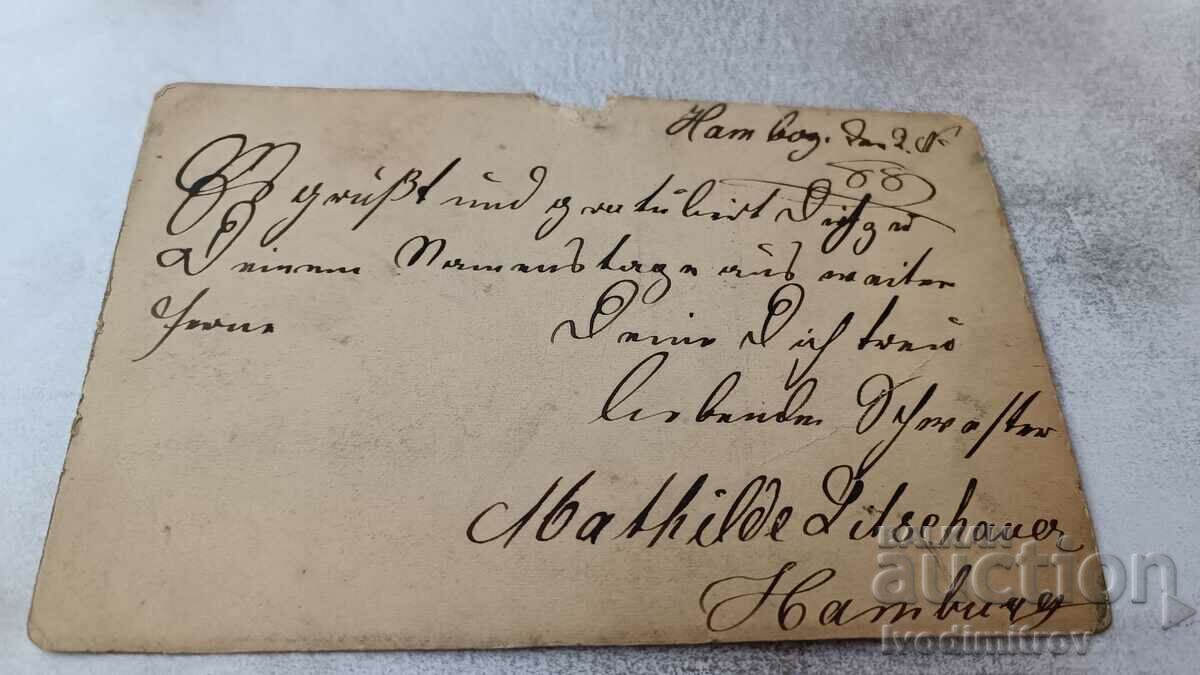 Hambog. den 2. N.
88
grüßt und gratulirt Dich zu
Deinem Namenstage aus weiter
Ferne
Deine Dich treu
liebende Schwester
Mathilde
Hamburg
BALKAN
auction
Ivodimitrov